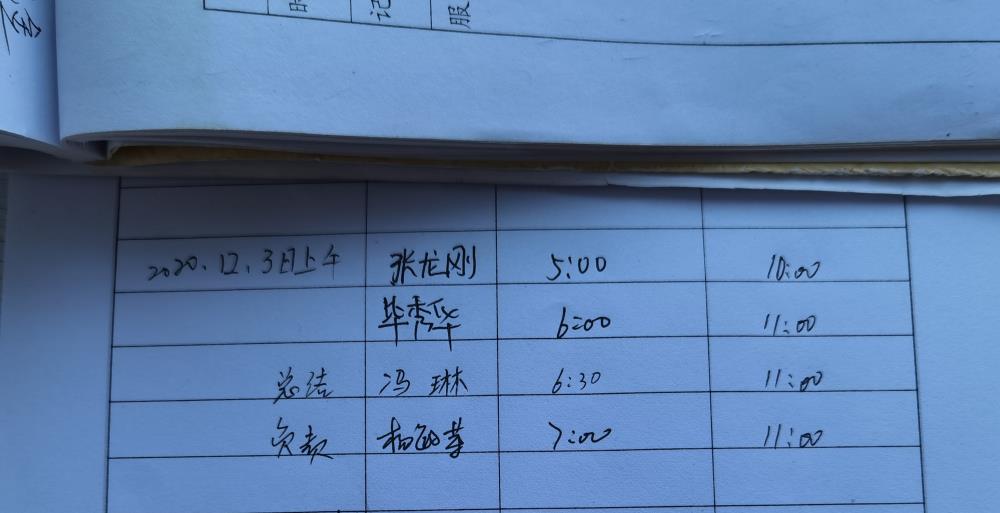 时
记
服
2020.12.3日上午 张龙刚 5:00 10:00
毕秀华 6:00 11:00
总结 冯琳 6:30 11:00
负责 7:00 11:00